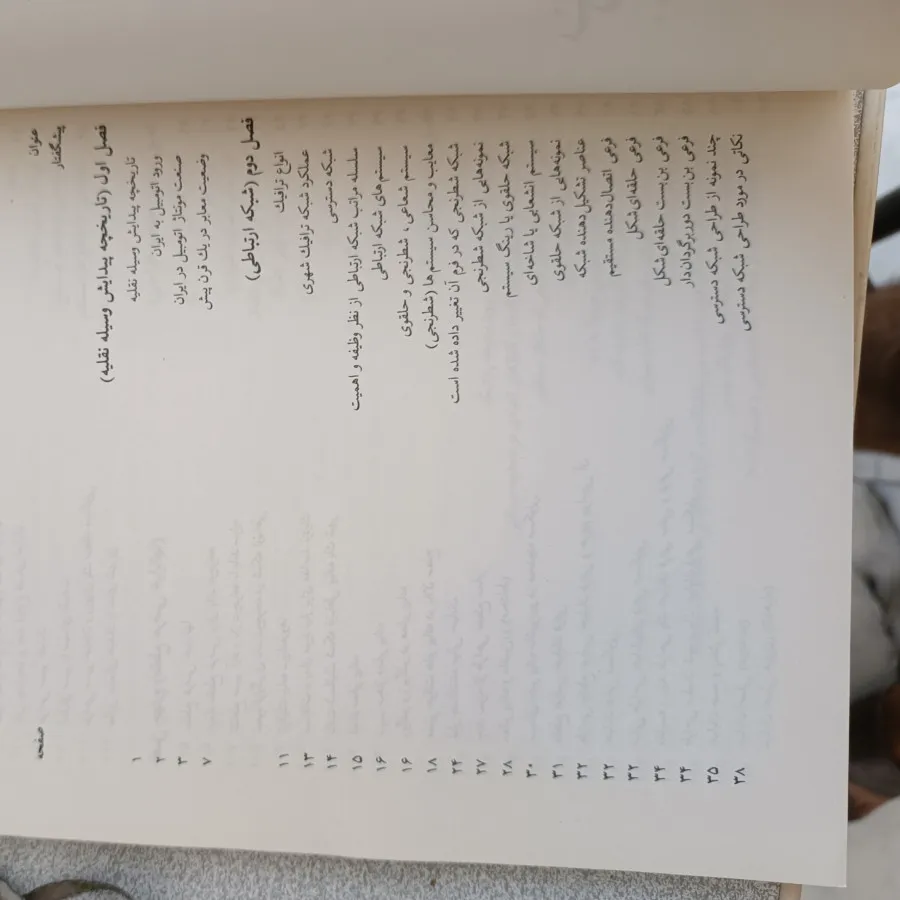 عنوان صفحه
پیشگفتار
فصل اول (تاریخچه پیدایش وسیله نقلیه)
تاریخچه پیدایش وسیله نقلیه ۱
ورود اتومبیل به ایران ۲
صنعت مونتاژ اتومبیل در ایران ۳
وضعیت معابر در یک قرن پیش ۷
فصل دوم (شبکه ارتباطی)
انواع ترافیک ۱۱
عملکرد شبکه ترافیک شهری ۱۳
شبکه دسترسی ۱۴
سلسله مراتب شبکه ارتباطی از نظر وظیفه و اهمیت ۱۵
سیستم‌های شبکه ارتباطی ۱۶
سیستم شعاعی ، شطرنجی و حلقوی ۱۶
معایب و محاسن سیستم ها (شطرنجی) ۱۸
شبکه شطرنجی که در فرم آن تغییر داده شده است ۲۴
نمونه‌هایی از شبکه شطرنجی ۲۷
شبکه حلقوی یا رینگ سیستم ۲۸
سیستم انشعابی یا شاخه‌ای ۳۰
نمونه‌هایی از شبکه حلقوی ۳۱
عناصر تشکیل دهنده شبکه ۳۲
فرعی اتصال‌دهنده مستقیم ۳۲
فرعی حلقه‌ای‌شکل ۳۲
فرعی بن‌بست حلقه‌ای‌شکل ۳۴
فرعی بن‌بست دوربرگردان‌دار ۳۴
چند نمونه از طراحی شبکه دسترسی ۳۵
نکاتی در مورد طراحی شبکه دسترسی ۳۸